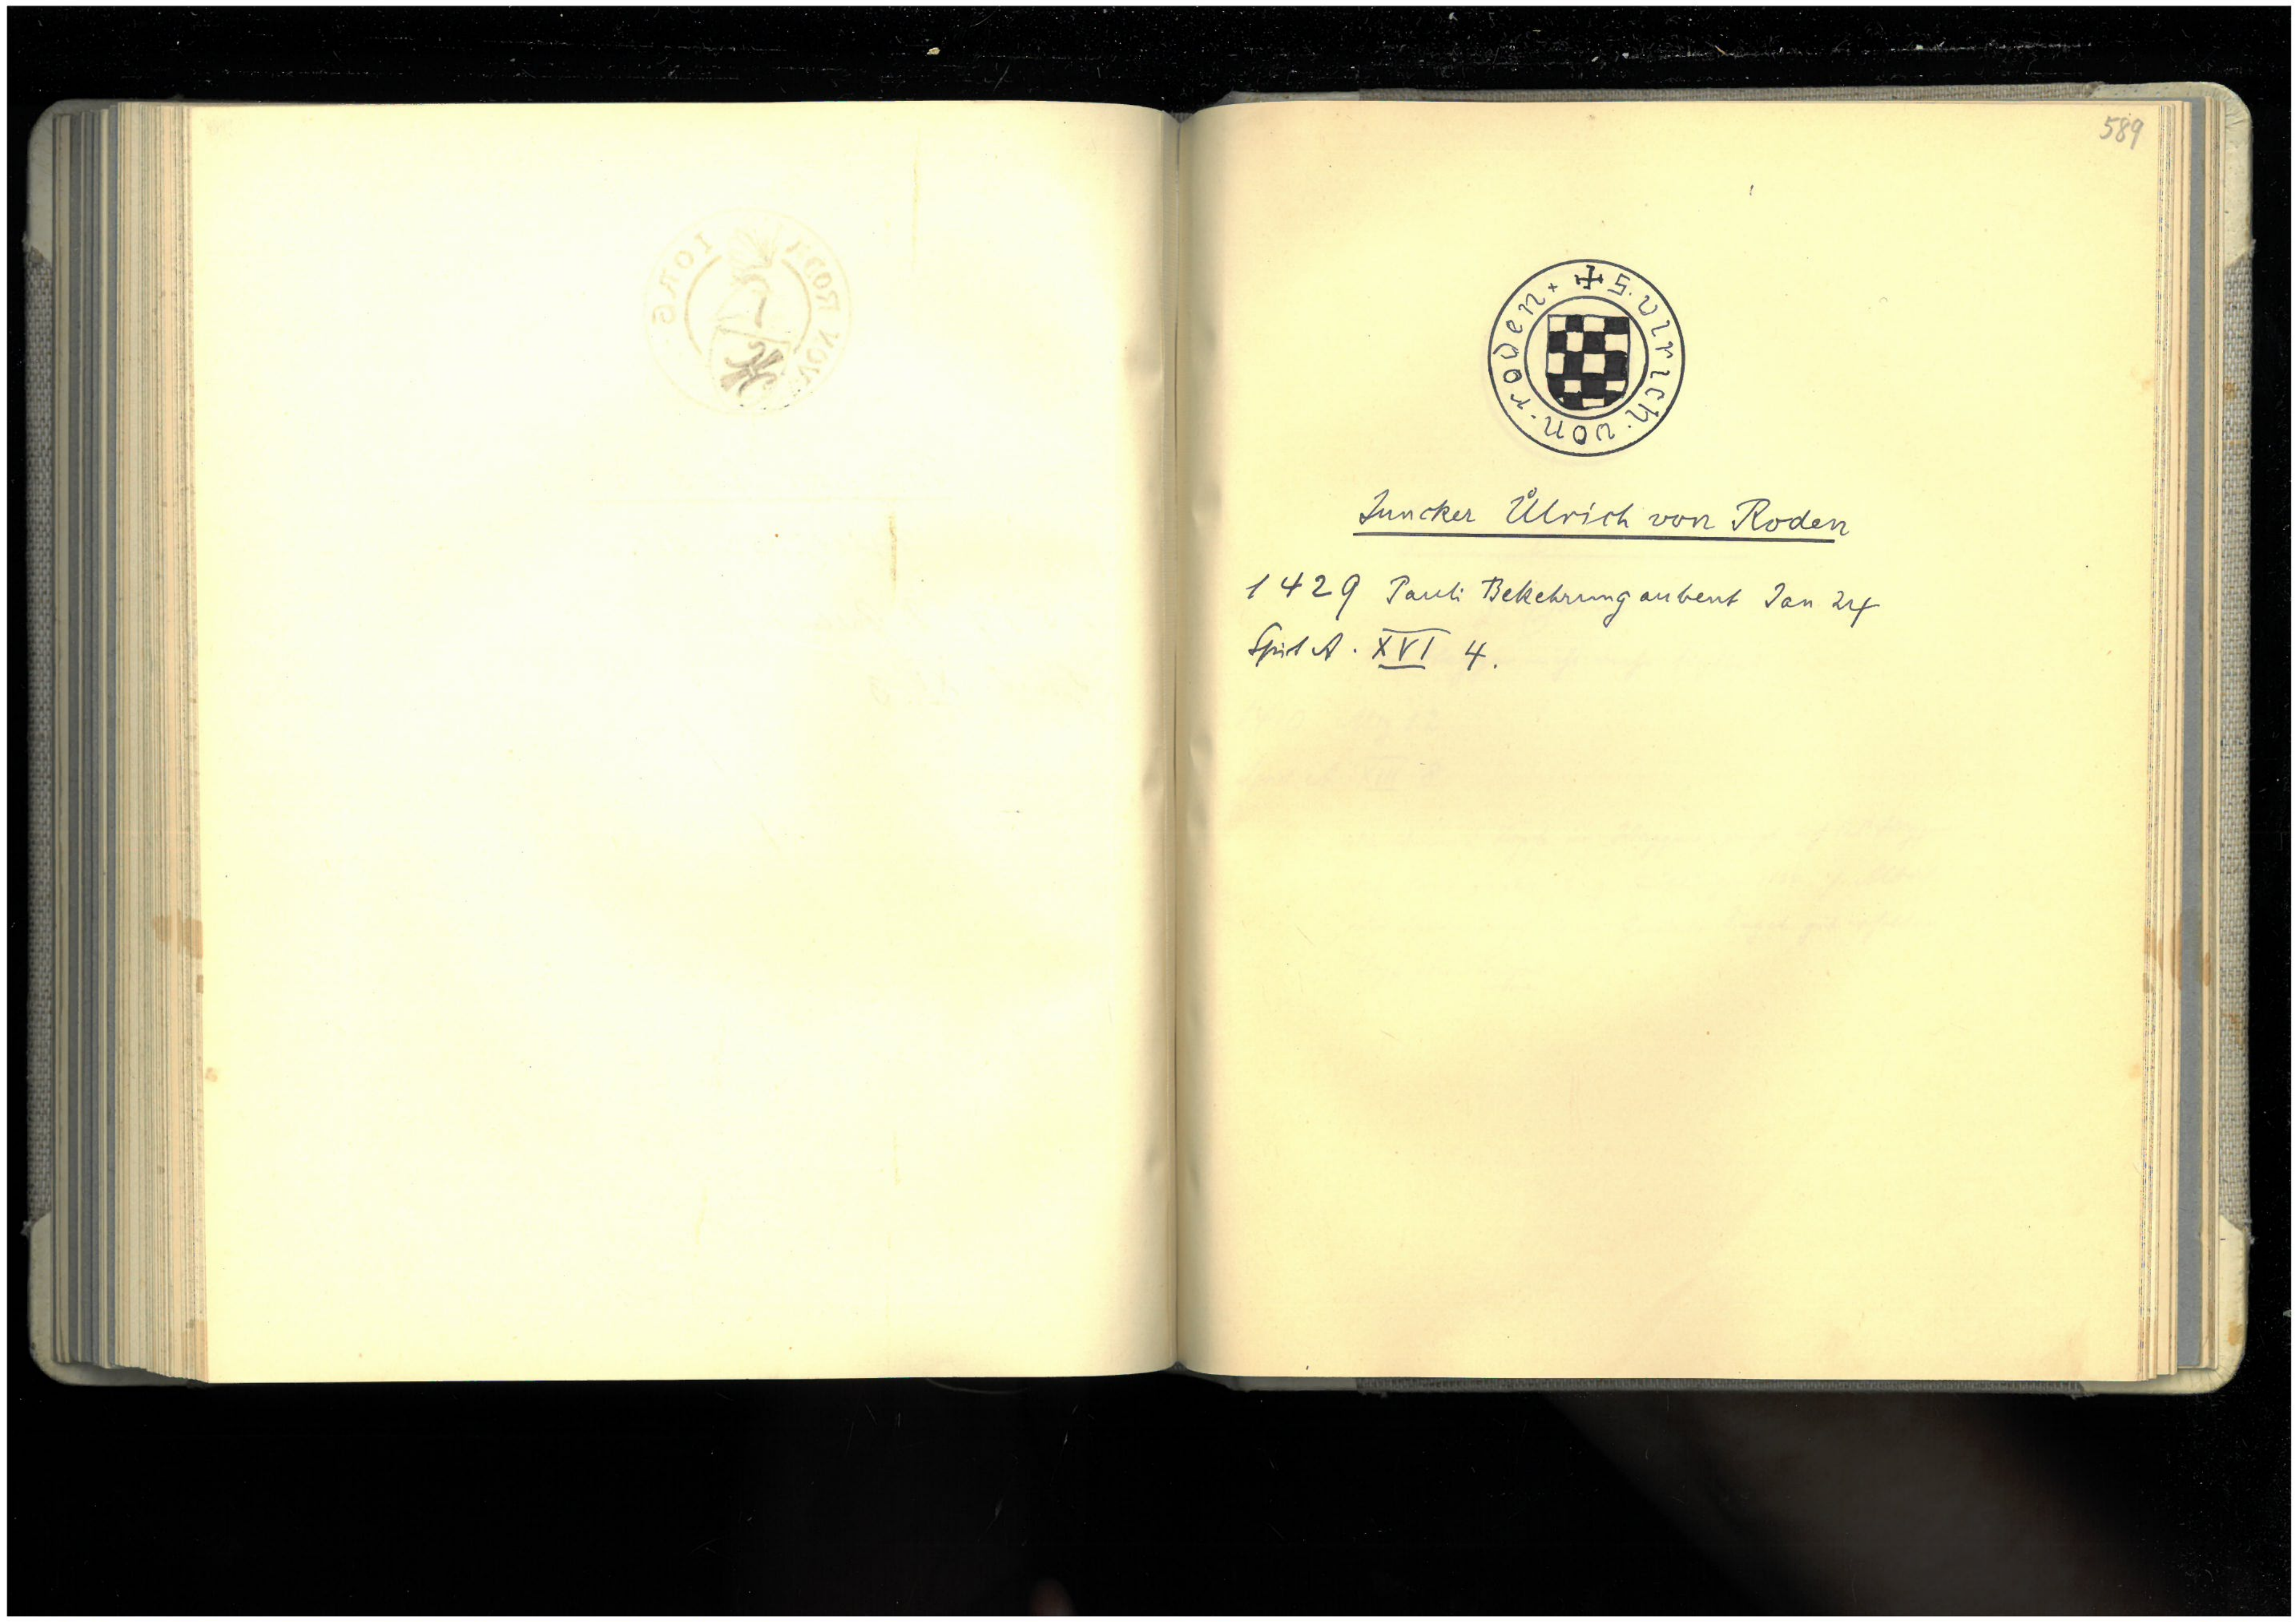 589
✠ S. vlrich · von · roden +
Juncker Ůlrich von Roden
1429 Pauli Bekehrung aubent Jan 24
Spit A. XVI 4.